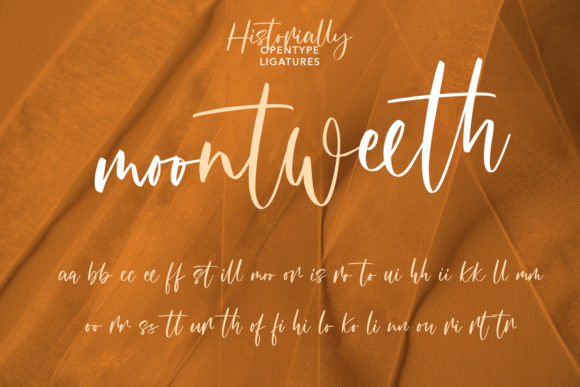 Historially
OPENTYPE
LIGATURES
moontweeth
aa bb cc ee ff st ill moo or is ro to ui hh ii kk ll mm
oo rr ss tt ur th of fi hi lo ko li nn ou ri rt tr